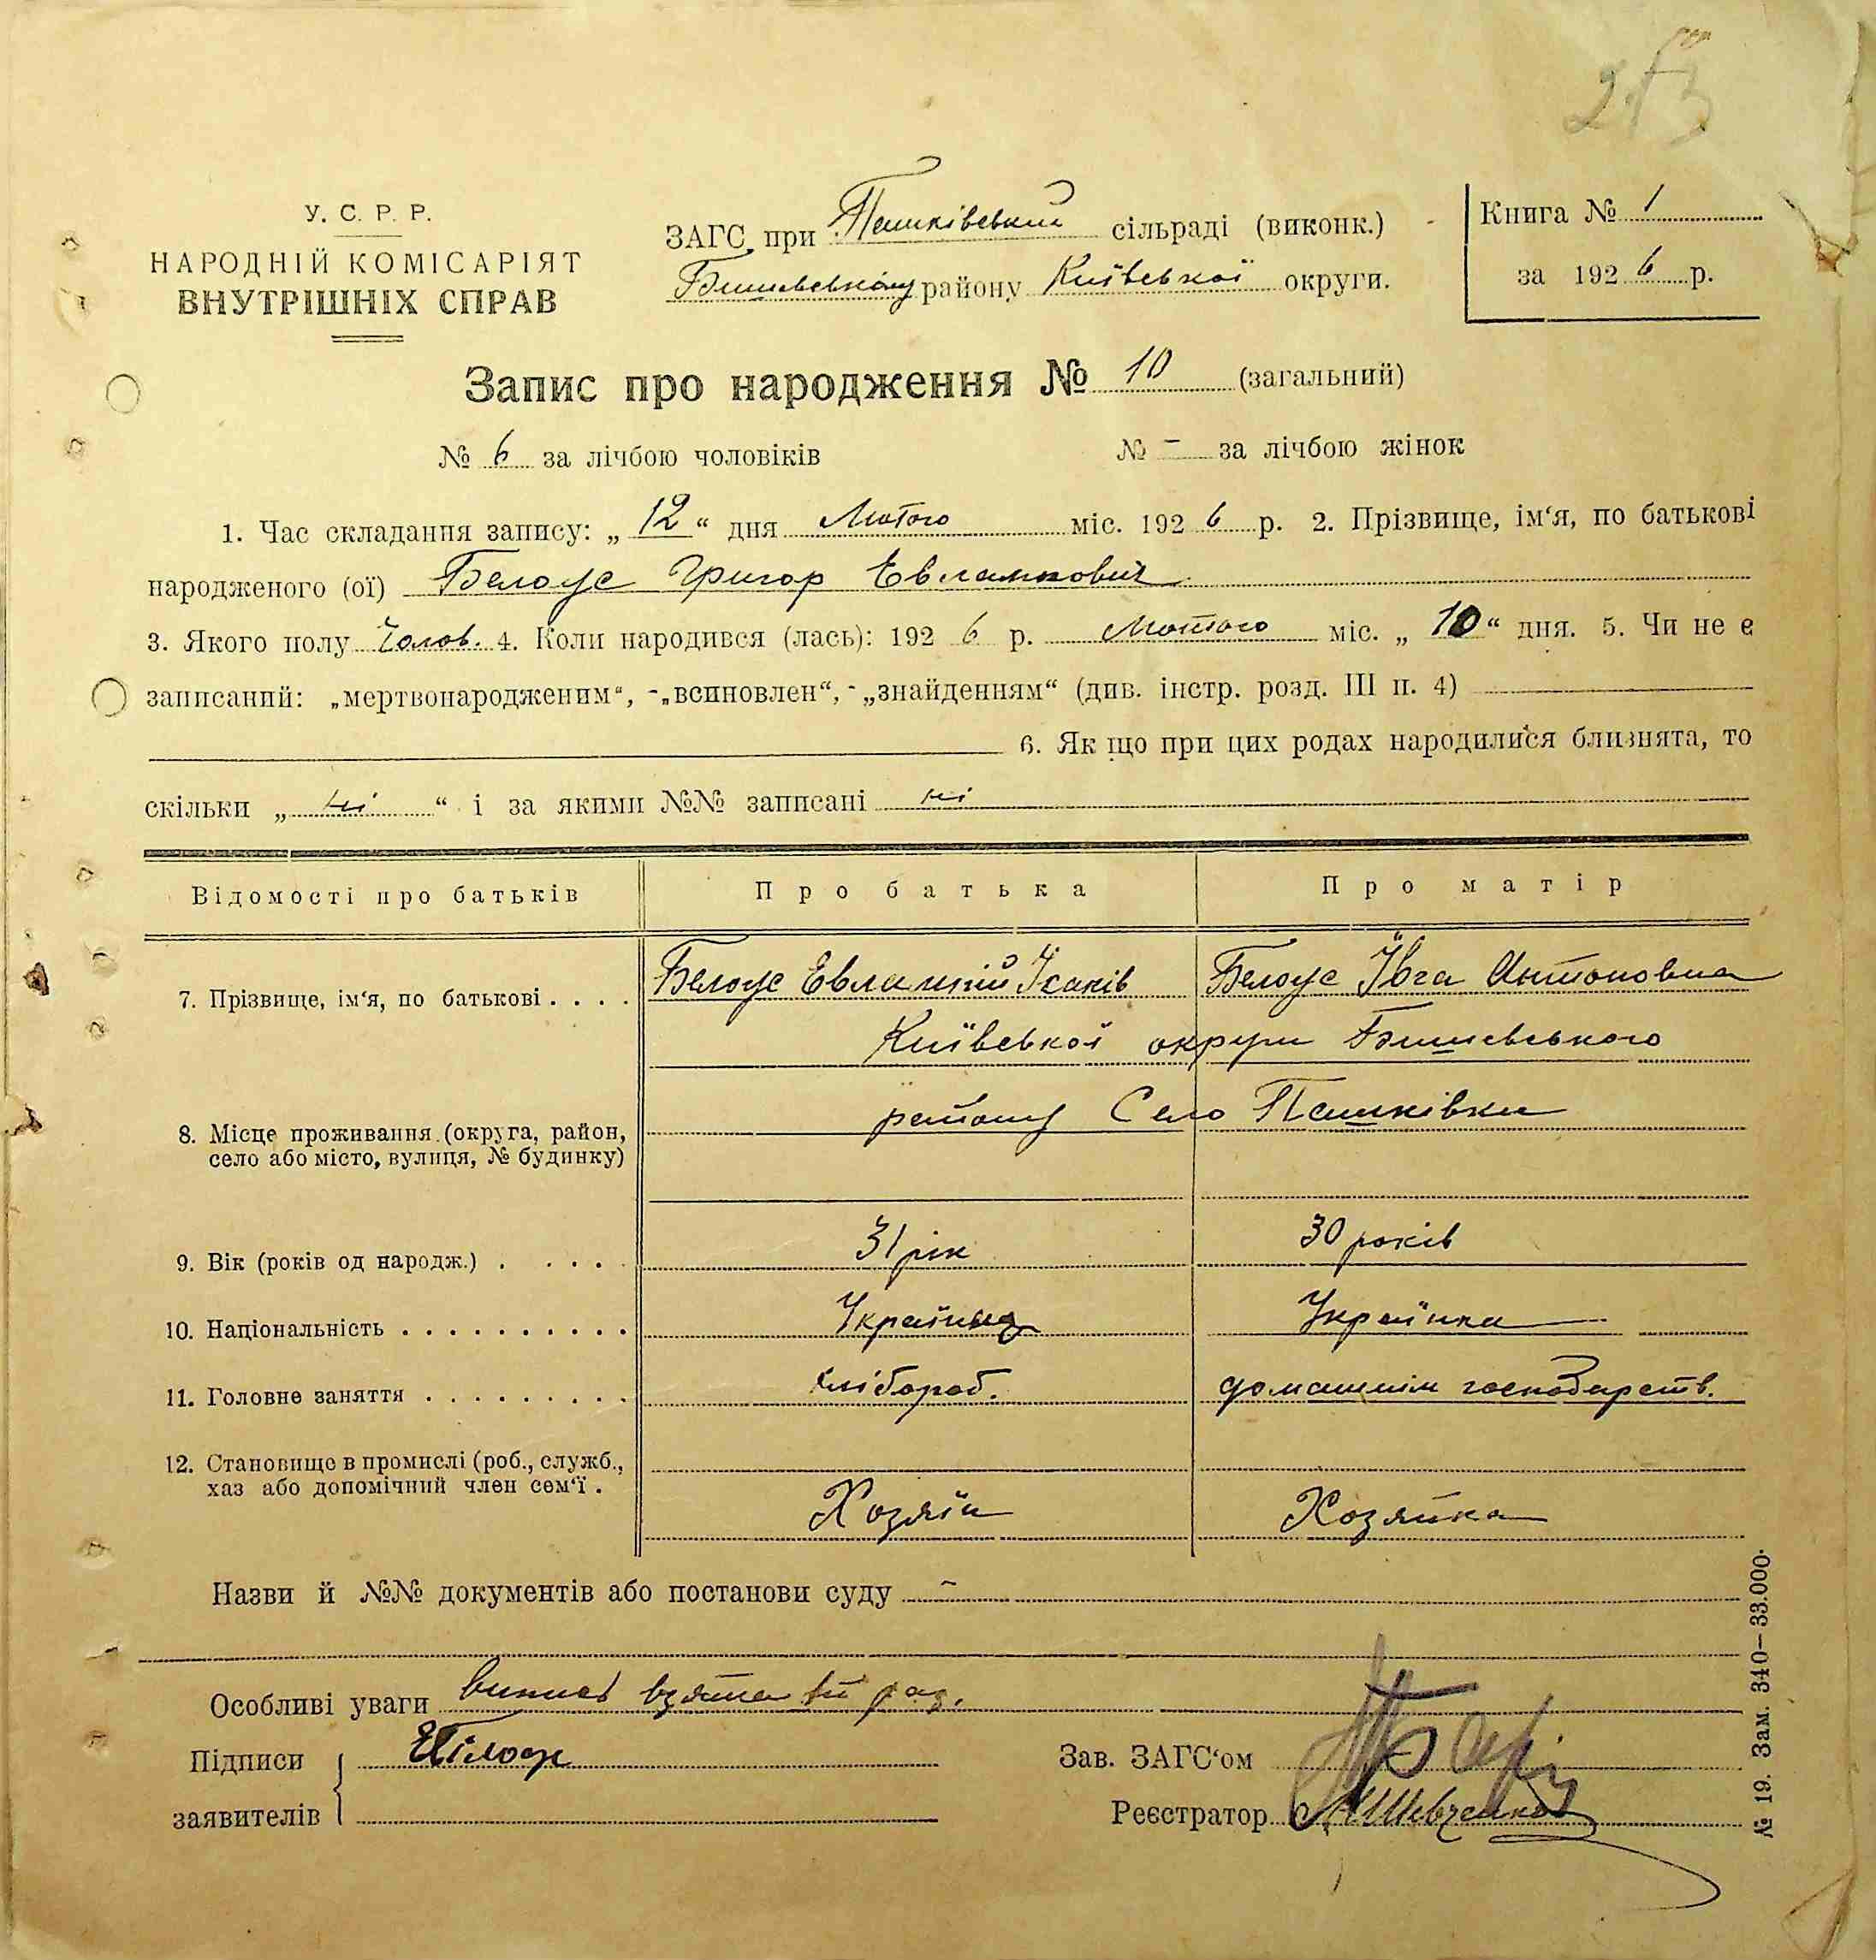 253
У. С. Р. Р.
НАРОДНІЙ КОМІСАРІЯТ
ВНУТРІШНІХ СПРАВ
ЗАГС при Пашківський сільраді (виконк.)
Бишевському району Київської округи.
Книга № 1
за 1926 р.
Запис про народження № 10 (загальний)
№ 6 за лічбою чоловіків № - за лічбою жінок
1. Час складання запису: „12“ дня Лютого міс. 1926 р. 2. Прізвище, ім‘я, по батькові
народженого (ої) Белоус Григор Евлампович
3. Якого полу Чолов. 4. Коли народився (лась): 1926 р. Лютого міс. „10“ дня. 5. Чи не є
записаний: „мертвонародженим“, -„всиновлен“, -„знайденням“ (див. інстр. розд. III п. 4)
6. Як що при цих родах народилися близнята, то
скільки „ні“ і за якими №№ записані ні
Відомості про батьків Про батька Про матір
7. Прізвище, ім‘я, по батькові . . . . Белоус Евлампій Ісаків Белоус Ївга Антоновна
Київської округи Бишевського
району Село Пашківка
8. Місце проживання (округа, район,
село або місто, вулиця, № будинку)
9. Вік (років од народж.) . . . . . 31 рік 30 років
10. Національність . . . . . . . . . . Українец Українка
11. Головне заняття . . . . . . . . . хлібороб. домашнім господарств.
12. Становище в промислі (роб., служб.,
хаз або допомічний член сем‘ї .
Хозяїн Хозяйка
Назви й №№ документів або постанови суду -
Особливі уваги випис взята
Підписи
заявителів
ЕБілоус
Зав. ЗАГС‘ом
Реєстратор Шевченко
№ 19. Зам. 340–33.000.